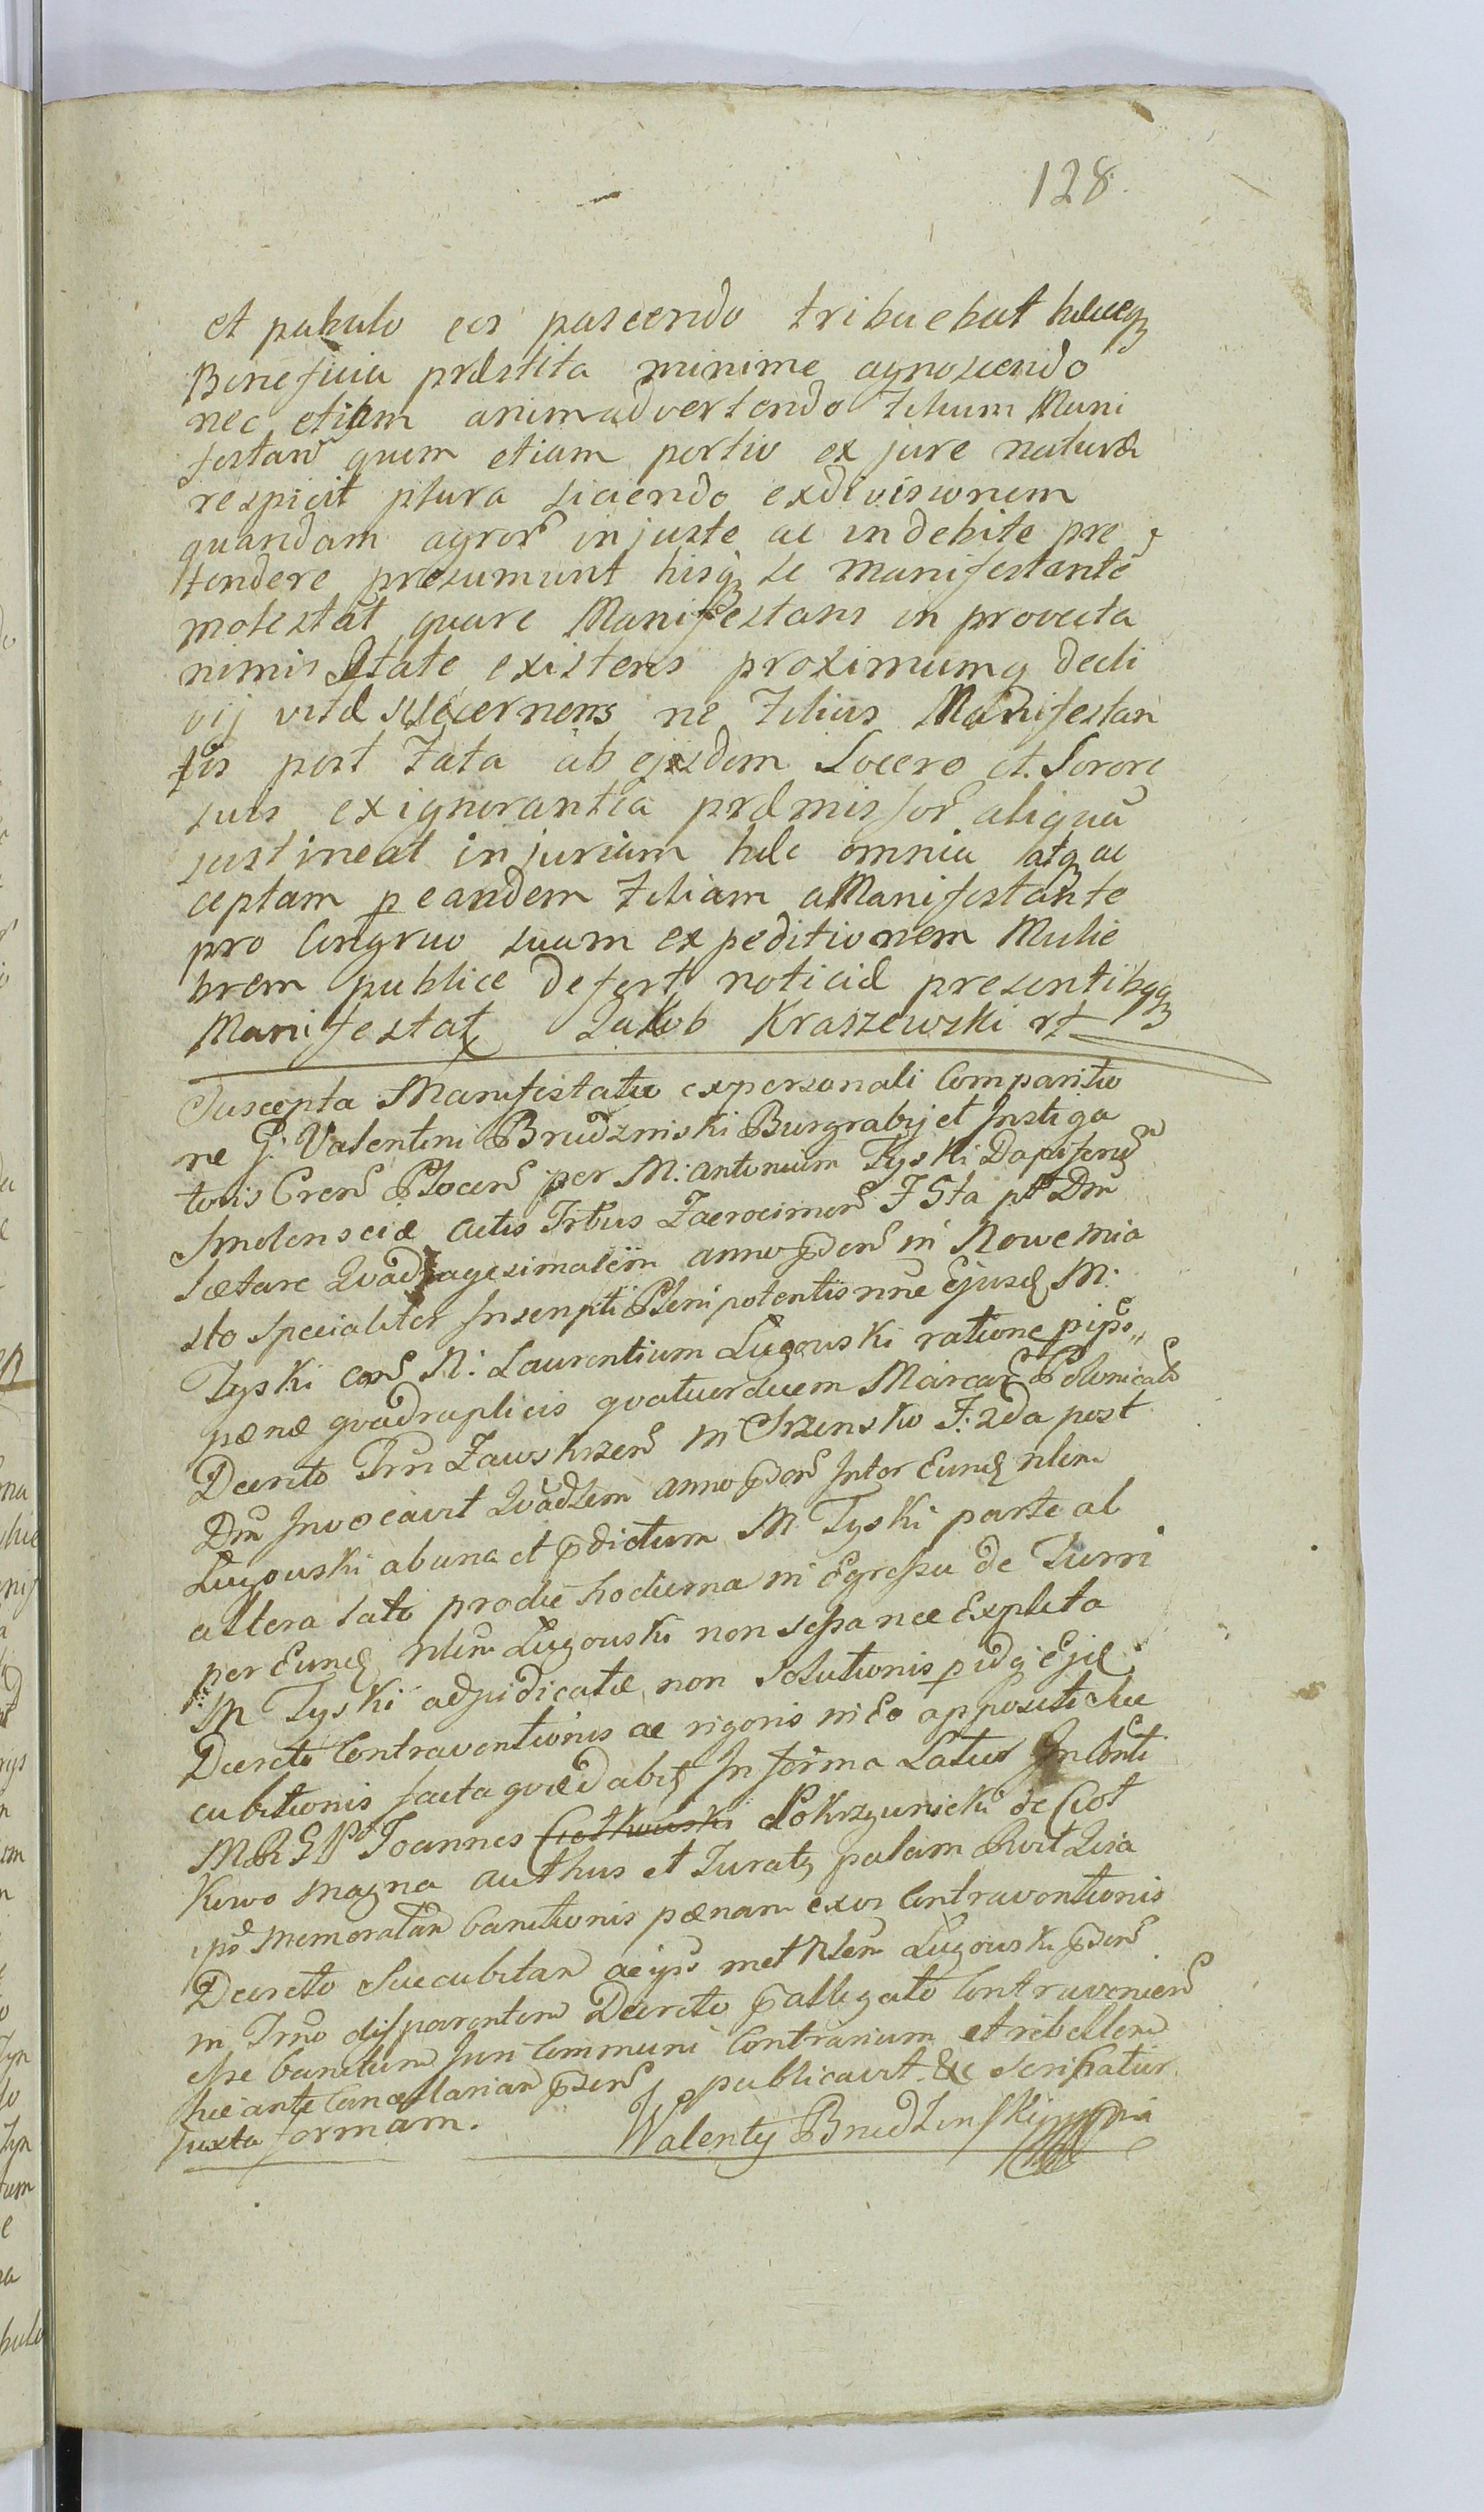 128.
et pabulo eos pascendo tribuebat hæceqȝ
Beneficia præstita minime agnoscendo
nec etiam animadvertendo Filium Mani
festanⁿ quem etiam portio ex jure naturæ
respicit plura siciendo exdivisionem
quandam agrorʳ injuste ac indebite præ
tendere presumunt hisqȝ se manifestantē
molestāt quare Manifestans in provecta
nimis Ætate existens proximumqȝ decli
vij vitæ secernens ne Filius Manifestan
tis post Fata ab ejusdem Socero et Sorore
suis ex ignorantia præmissorʳ aliquā
sustineat injuriam hæc omnia atqȝ ac
ceptam p eandem Filiam a Manifestante
pro Congruo suam expeditionem Mulie
brem publice defert noticiæ presentibqqȝ
Manifestatȝ Jakob Kraszewski rt
Suscepta Manifestatio ex personali Comparitio
ne G: Valentini Brudzinski Burgrabij et Instiga
toris Crenˢ Plocenˢ per M: Antonium Tyski Dapiferūˢ
Smolensciæ Actis Trbus Zacrocimenˢ F 5ta pt Dm
Lætare Quadragesimalem anno p̄denˢ in Nowemia
sto specialiter Inscripti Plenipotentis nne Ejusdȝ M:
Tyski conˢ N: Laurentium Lugowski ratione pipˢ„
pænæ qvadruplicis qvatuordecem Marcarʳ Polonicalˢ
Decreto Trri Zawskrzenˢ in Srzensko F: 2da post
Dm Invocavit Quadlem anno p̄denˢ Inter Eundȝ Nlem
Lugowski ab una et p̄dictum M Tyski parte ab
altera lato prodie hodierna in Egressu de Turri
per Eundȝ Nlem Lugowski non sessa nec Expleta
M Tyski adjudicatæ non Solutionis pidqȝ Ejdȝ
Decreto Contraventionis ac rigoris in Eo appositi Suc
cubitionis facta qvædabitȝ In forma Latius Inlonti
MRGPˢ Joannes Ciotkowski Pokrzywnicki de Ciot
kowo Magna authus et Juratȝ palam Rvit Qvia
ipse memoratam Banitionis pænam exvi Contraventionis
Decreto Succubitam ac ipsumet Nlem Lugowski p̄denˢ
in Trrio disparentem Decreto p̄allegato Contravenienˢ
esse banitum Juri Communi Contrarium et rebellem
hic ante Cancellariam p̄senˢ publicavit &c Scribatur
Juxta formam. Walenty Brudzinski mppria